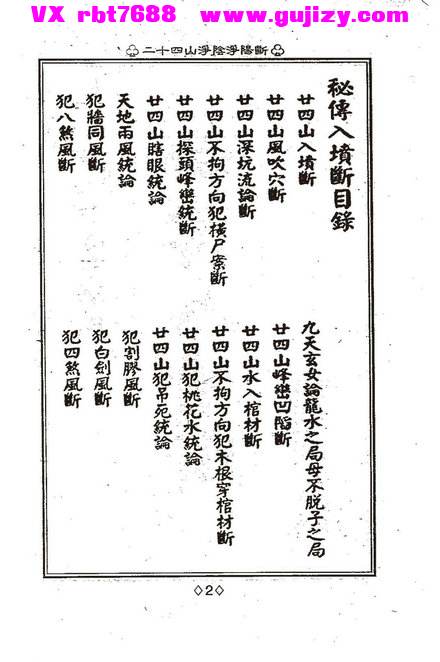 VX rbt7688 www.gujizy.com
二十四山淨陰淨陽斷
秘傳入墳斷目錄
廿四山入墳斷
廿四山風吹穴斷
廿四山深坑流論斷
廿四山不拘方向犯橫尸案斷
廿四山探頭峰巒統斷
廿四山瞎眼統論
天地雨風統論
犯牆同風斷
犯八煞風斷
九天玄女論龍水之局母不脫子之局
廿四山峰巒凹陷斷
廿四山水入棺材斷
廿四山不拘方向犯木根穿棺材斷
廿四山犯桃花水統論
廿四山犯吊死統論
犯割膠風斷
犯白劍風斷
犯四煞風斷
◇2◇